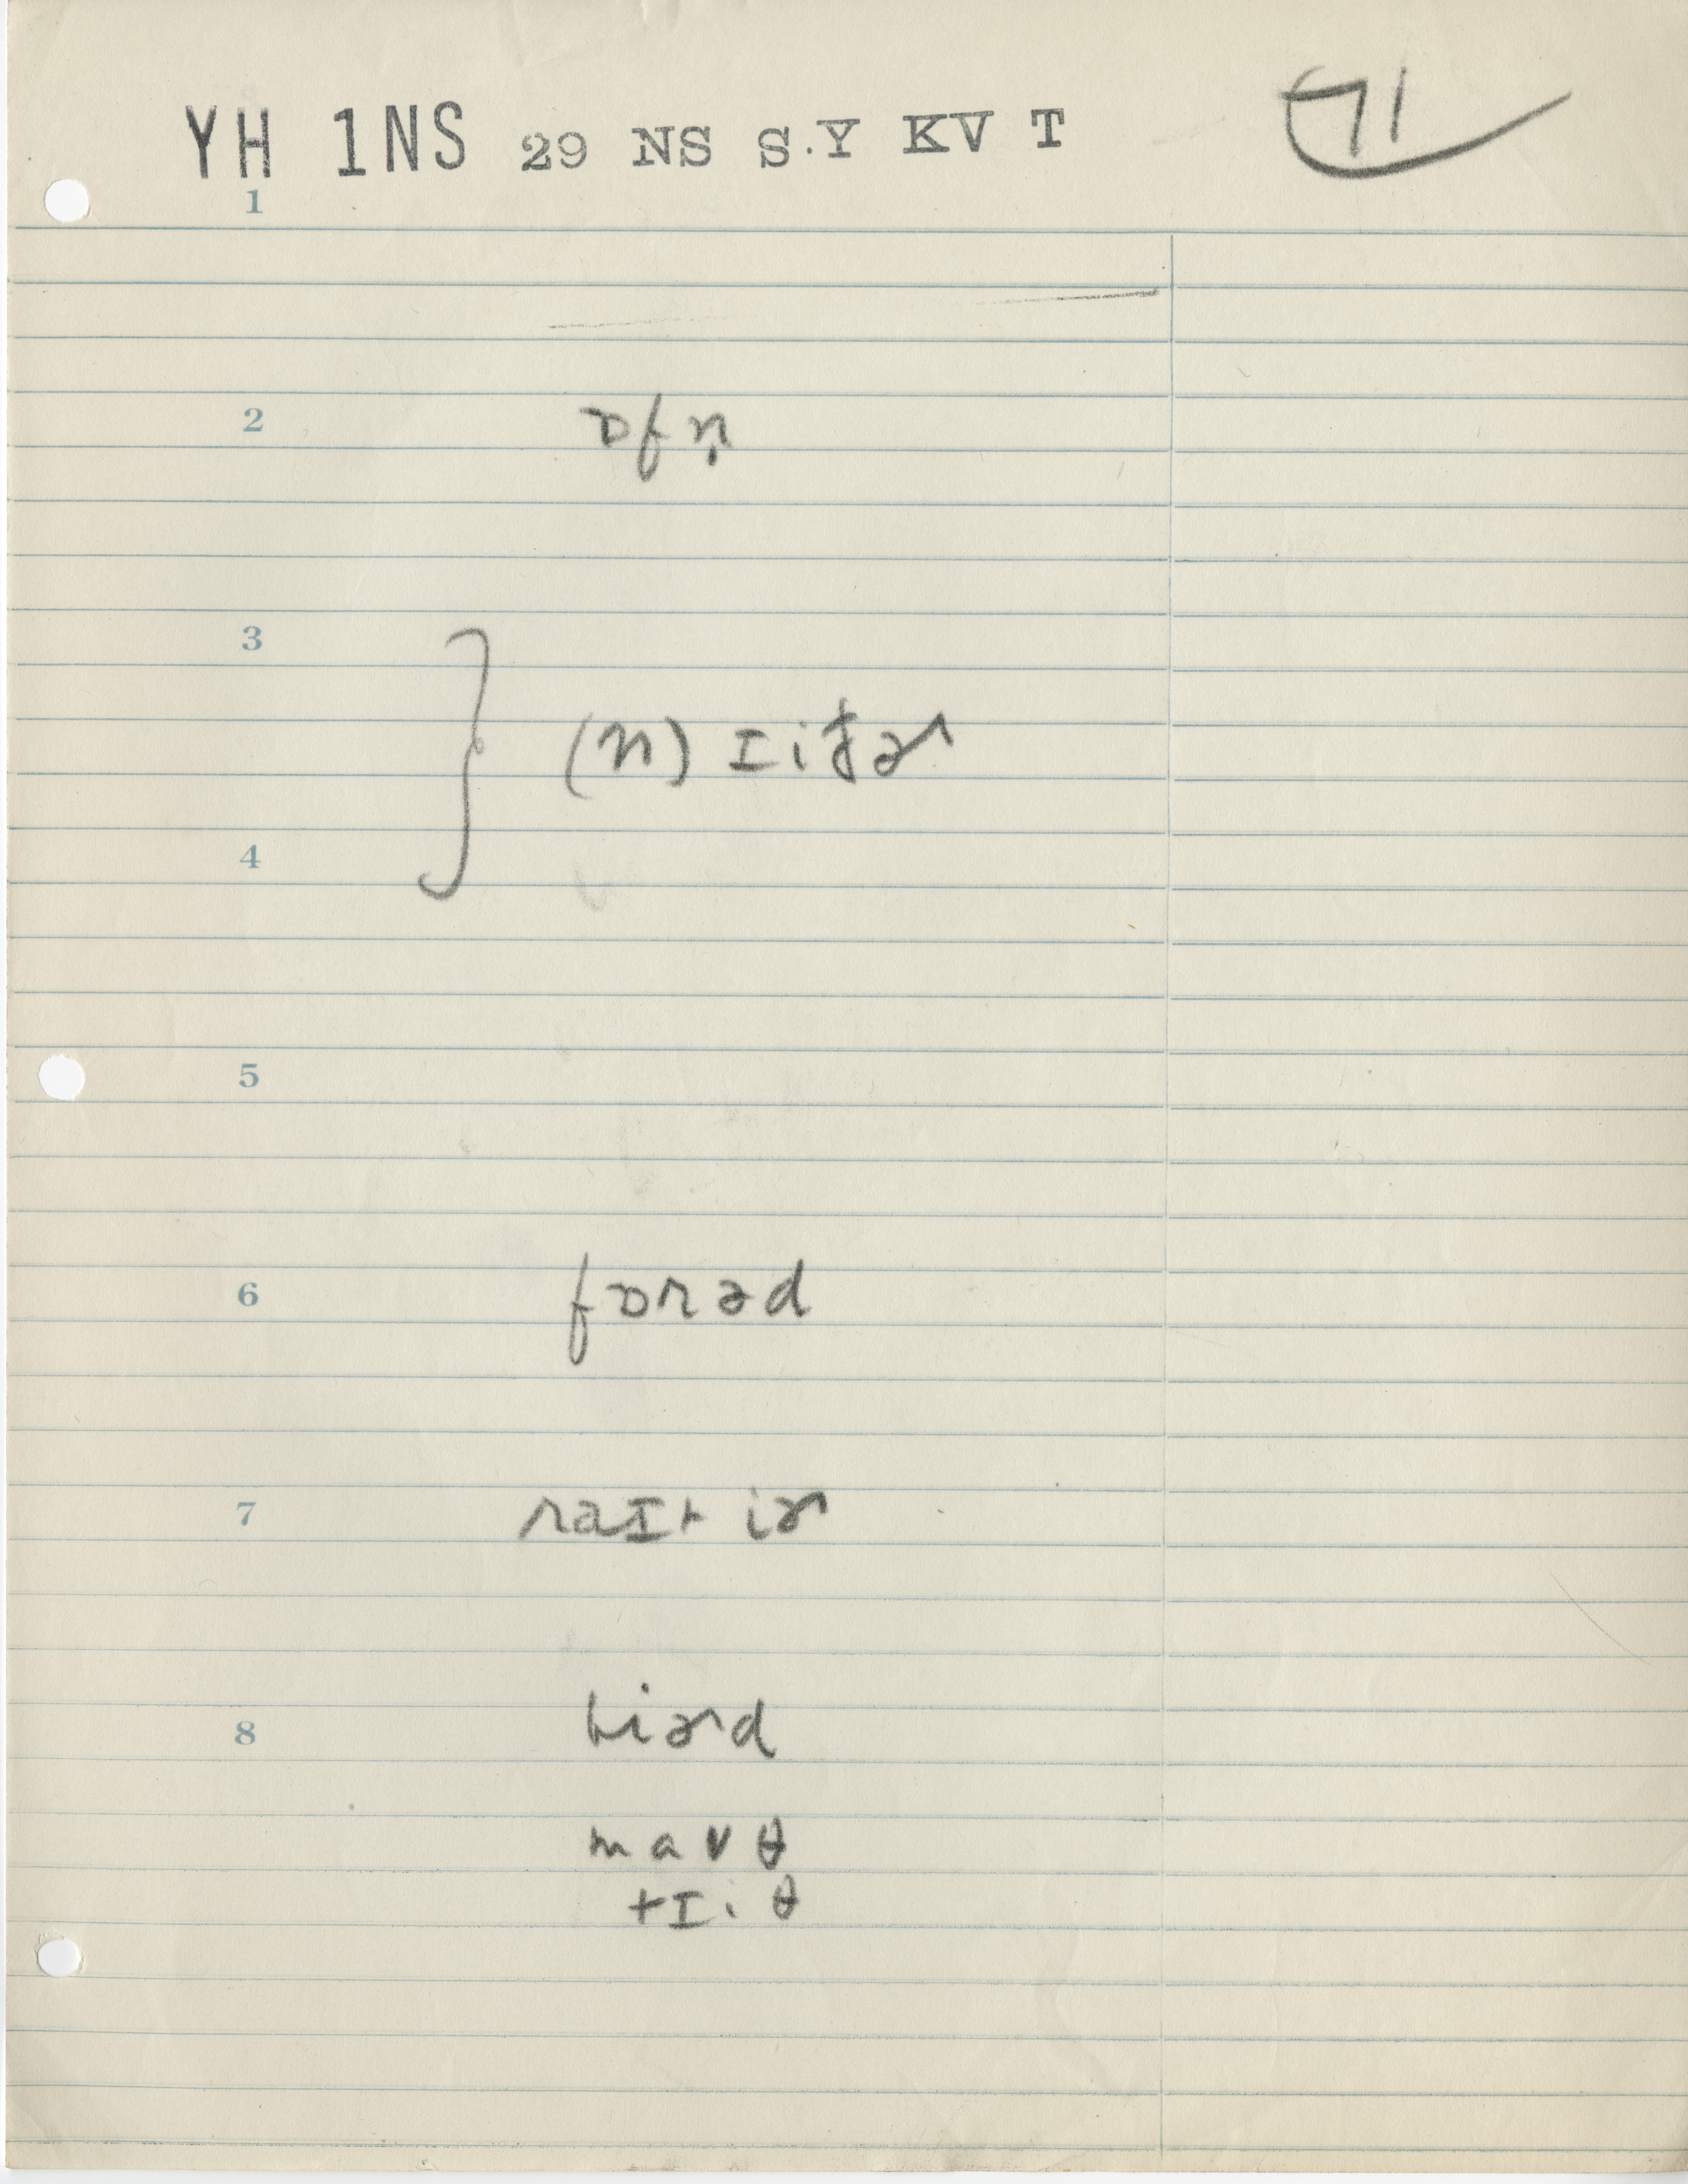 YH 1NS 29 NS S.Y KV T 71
1
2 ɒfṇ
3
(n) ɪiðɚ
4
5
6 fɒrəd
7 raɪt iɚ
8 hiɚd
maʊθ
tɪiθ